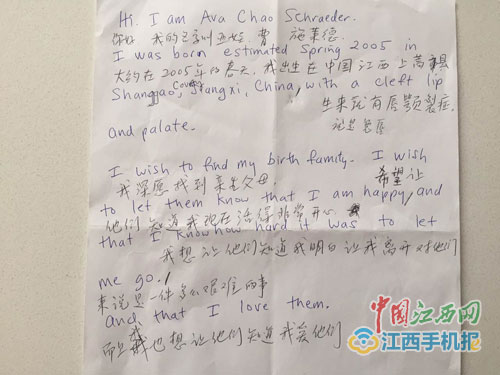 Hi. I am Ava Chao Schraeder.
你好 我的名字叫 费 施莱德.
I was born estimated Spring 2005 in
大约在2005年的春天, 我出生在中国江西上高县
County
Shanggao, Jiangxi, China, with a cleft lip
生来就有唇颚裂症.
and palate.
I wish to find my birth family. I wish
我深愿找到亲生父母. 希望让
to let them know that I am happy, and
他们知道我现在活得非常开心
that I know how hard it was to let
我想让他们知道我明白让我离开对他们
me go.
来说是一件多么艰难的事
and that I love them.
而且我也想让他们知道我爱他们
中国江西网
江西手机报